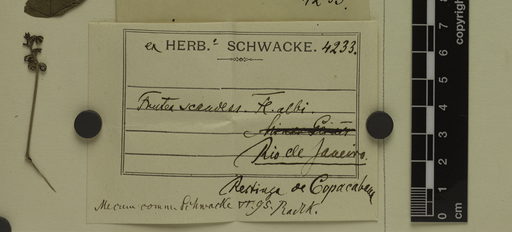 ex HERB.ᵉ SCHWACKE. 4233.
Frutex scandens. Fl. albi
Minas
Rio de Janeiro.
Restinga de Copacabana
Mecum comm. Schwacke VI. 95. Radlk.
copyright
0 1 2 3 4 5
cm